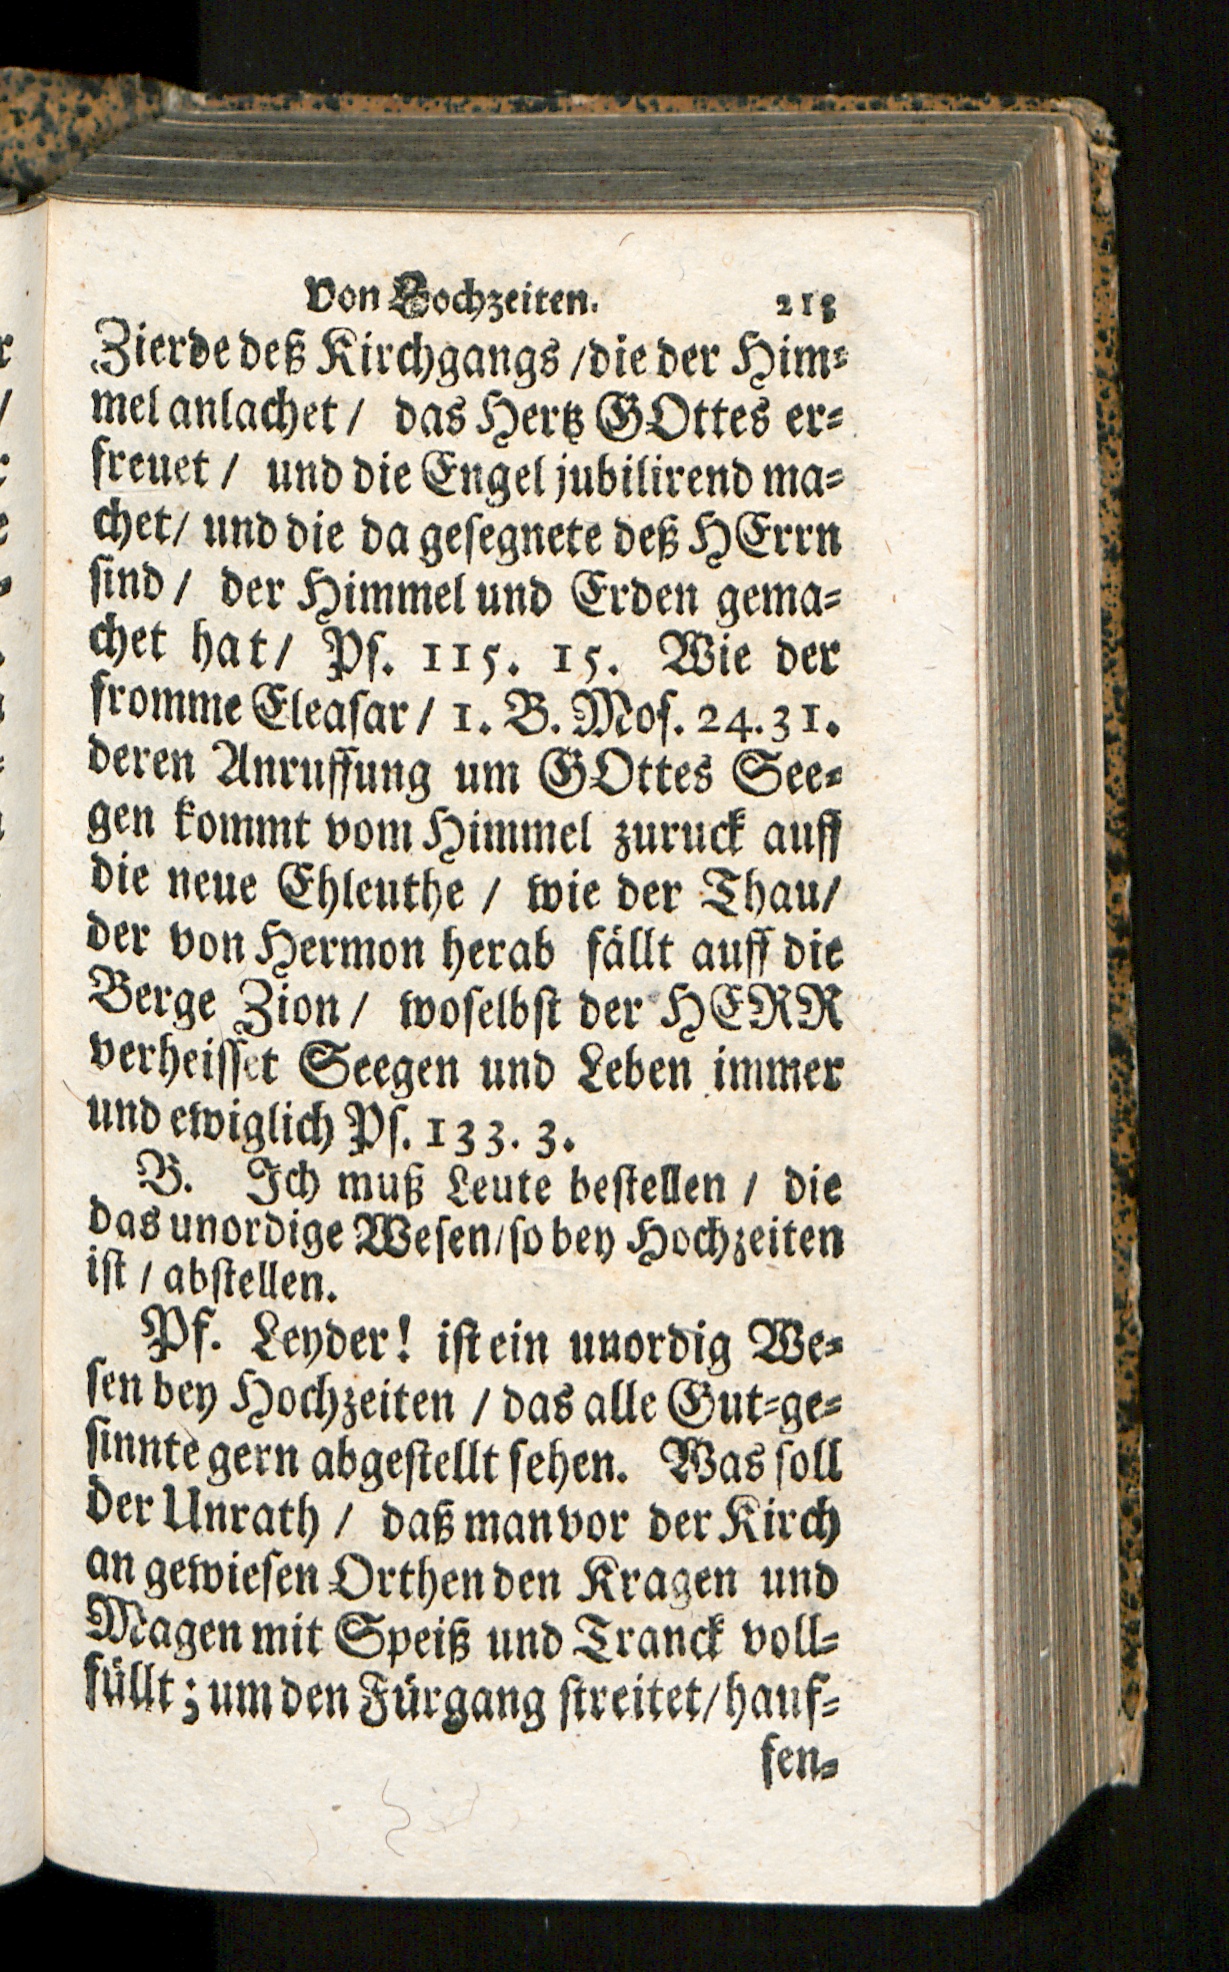 Von Hochzeiten. 213
Zierde deß Kirchgangs / die der Him⸗
mel anlachet / das Hertz GOttes er⸗
freuet / und die Engel jubilirend ma⸗
chet / und die da gesegnete deß HErrn
sind / der Himmel und Erden gema⸗
chet hat / Ps. 115. 15. Wie der
fromme Eleasar / 1. B. Mos. 24. 31.
deren Anruffung um GOttes See⸗
gen kommt vom Himmel zuruck auff
die neue Ehleuthe / wie der Thau /
der von Hermon herab fällt auff die
Berge Zion / woselbst der HERR
verheisset Seegen und Leben immer
und ewiglich Ps. 133. 3.
B. Ich muß Leute bestellen / die
das unordige Wesen / so bey Hochzeiten
ist / abstellen.
Pf. Leyder! ist ein unordig We⸗
sen bey Hochzeiten / das alle Gut⸗ge⸗
sinnte gern abgestellt sehen. Was soll
der Unrath / daß man vor der Kirch
an gewiesen Orthen den Kragen und
Magen mit Speiß und Tranck voll⸗
füllt; um den Fürgang streitet / hauf⸗
fen⸗